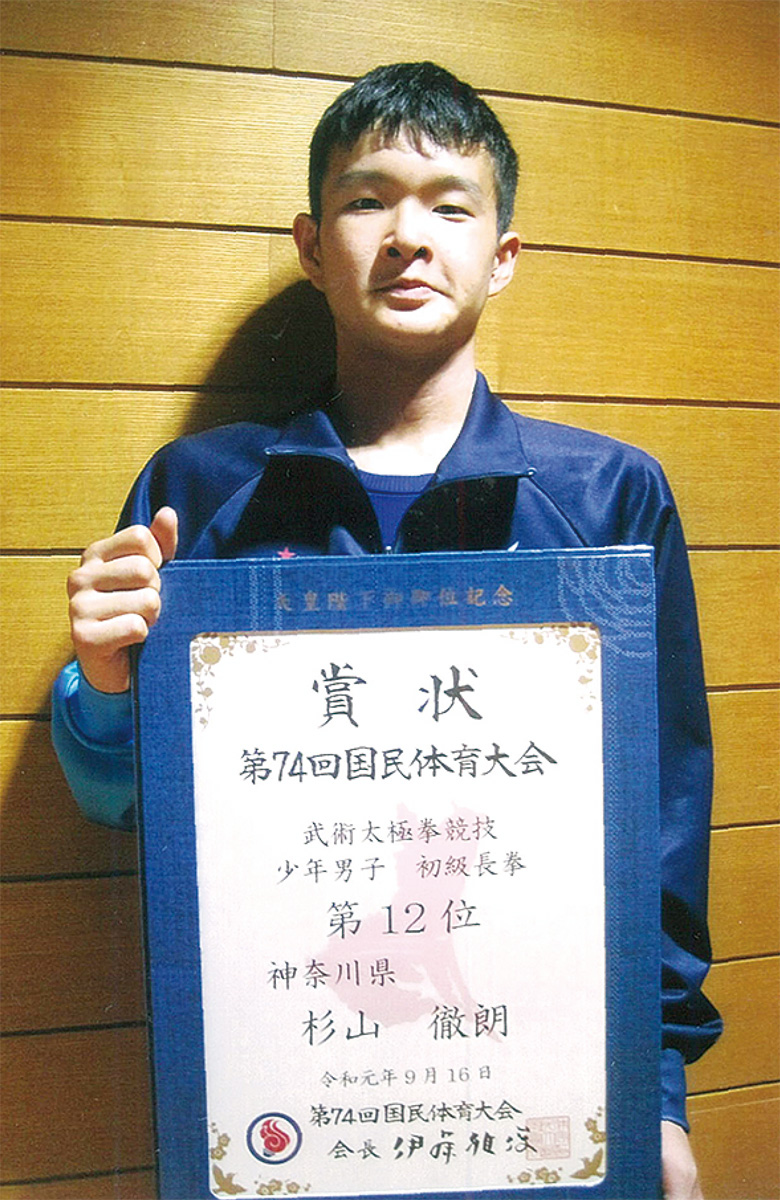 天皇陛下御即位記念
賞状
第74回国民体育大会
武術太極拳競技
少年男子 初級長拳
第12位
神奈川県
杉山 徹朗
令和元年9月16日
第74回国民体育大会
会長